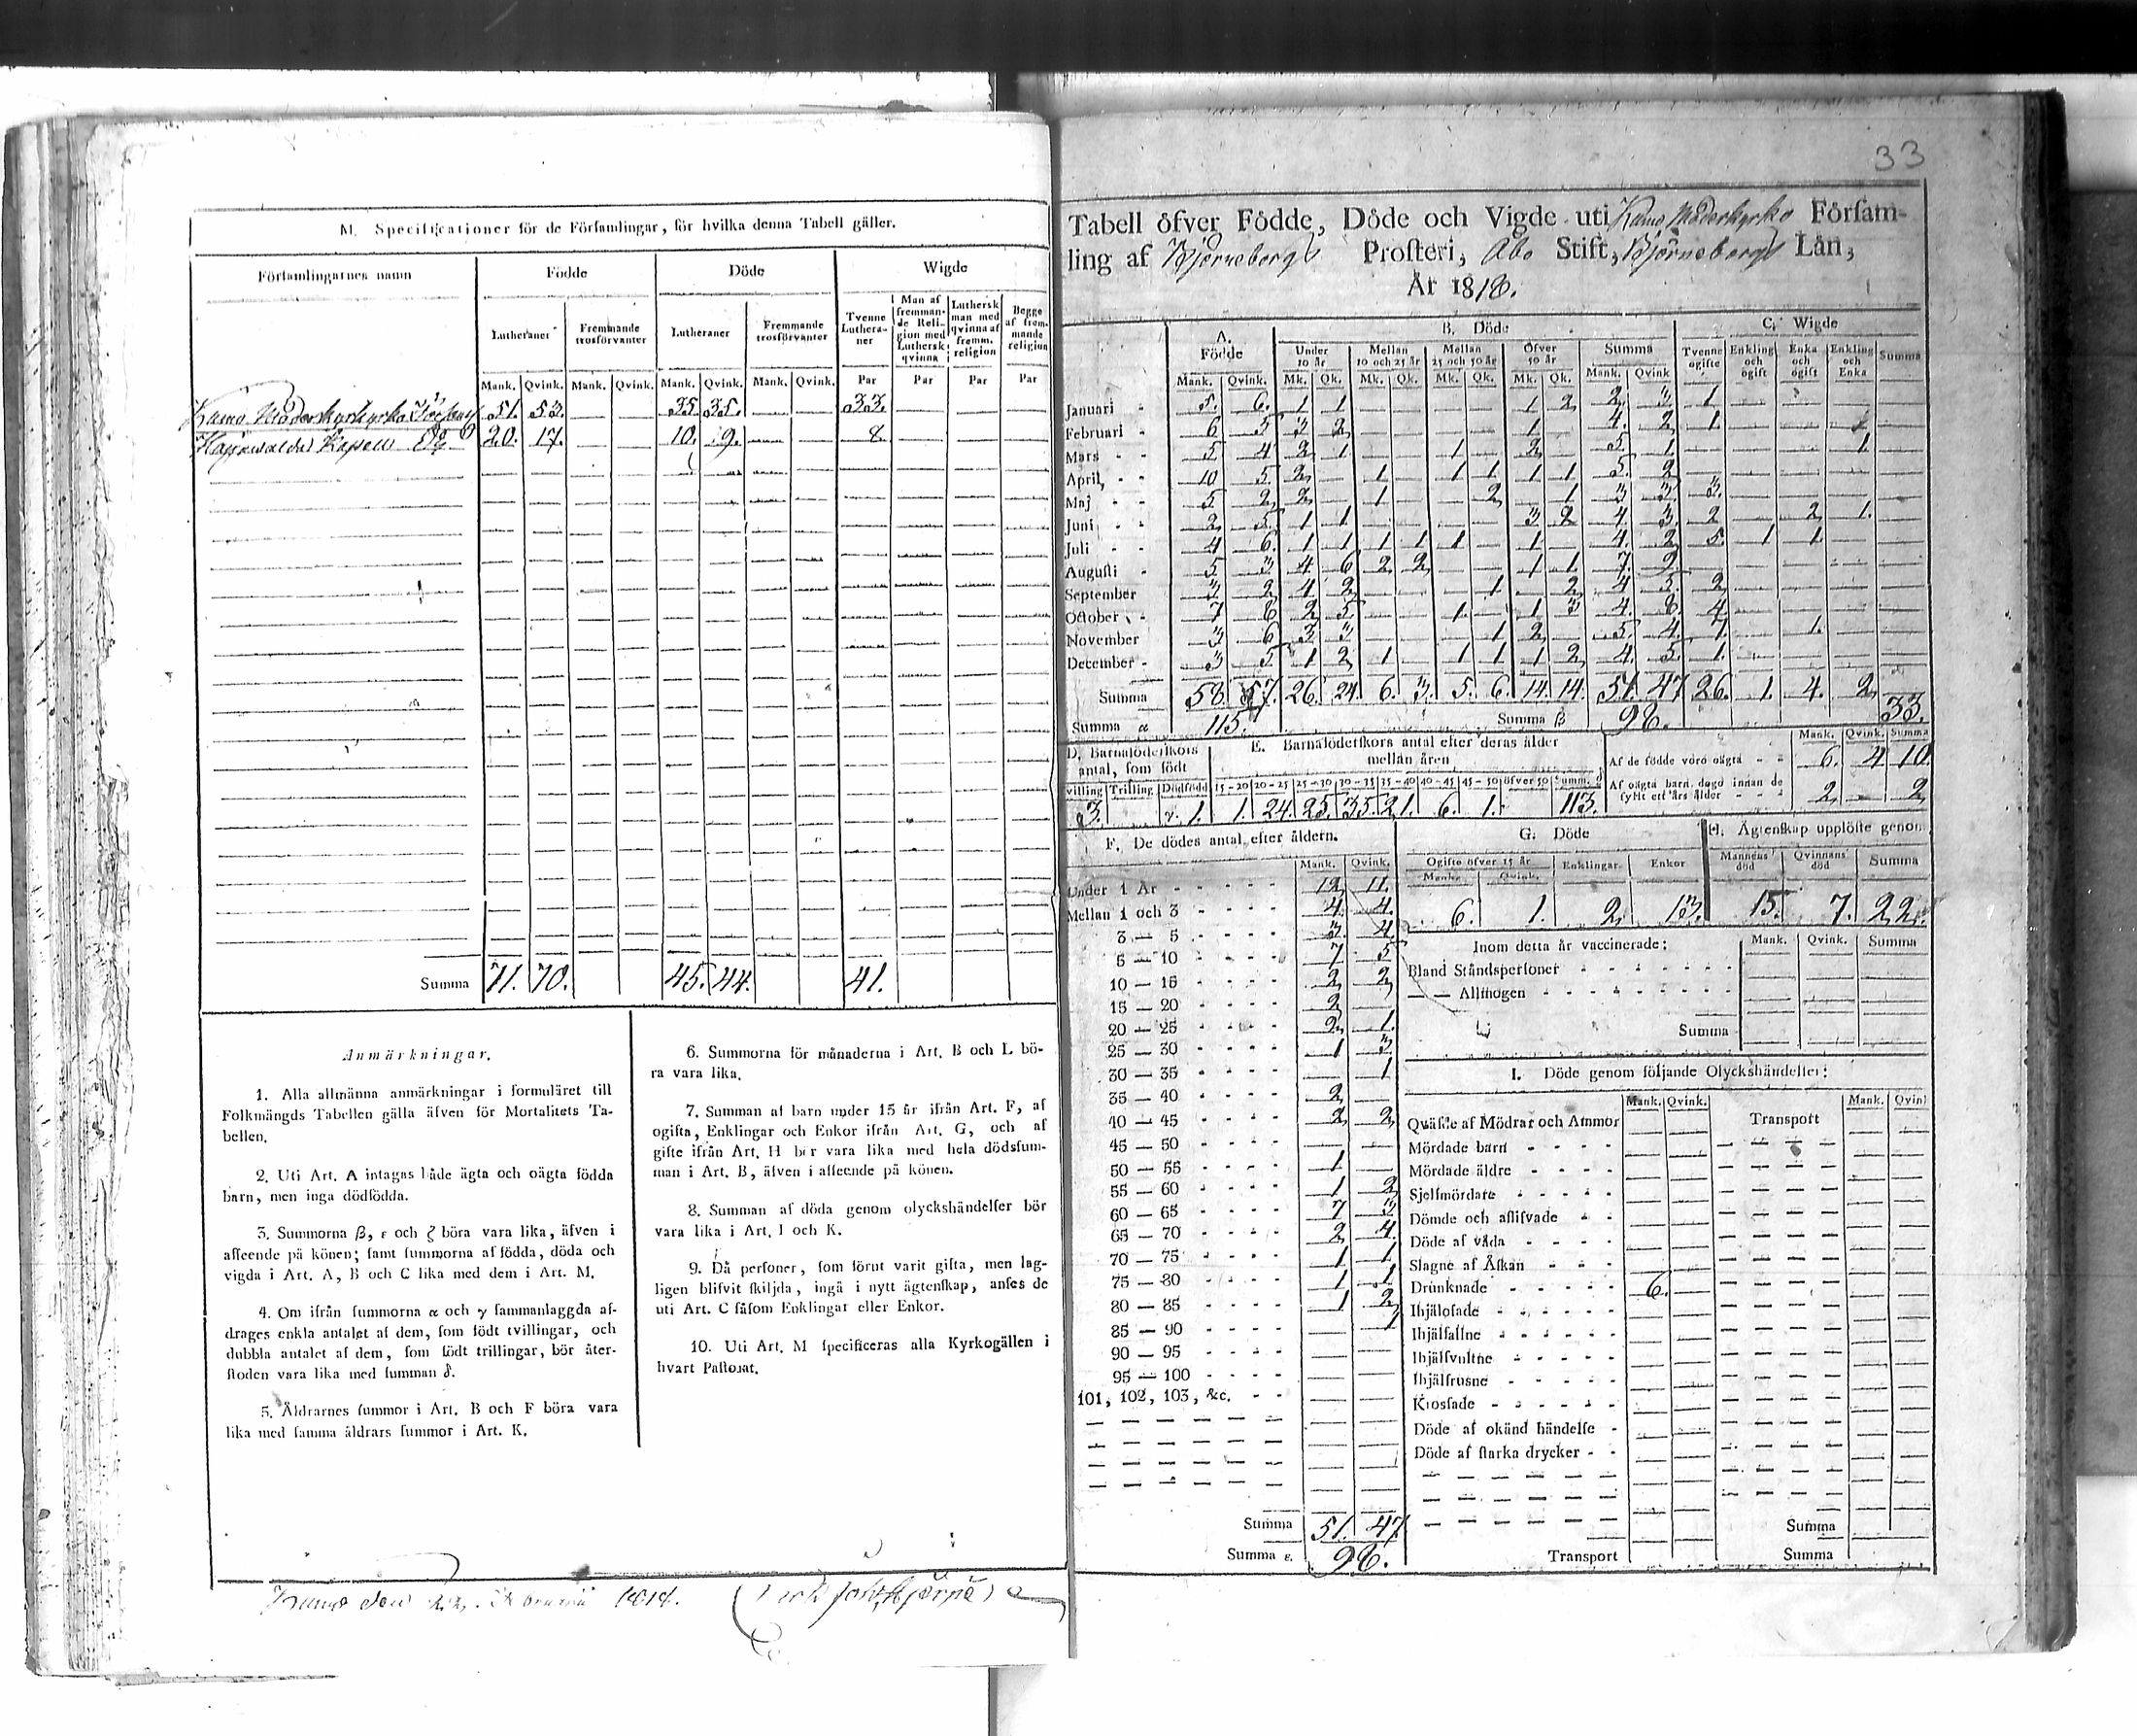 M. Specificationer för de Församlingar, för hvilka denna Tabell gäller.
Församlingarnes namn Födde Döde Wigde
Lutheraner Fremmande trosförvanter Lutheraner Fremmande trosförvanter Tvenne Lutheraner Man af fremmande Religion med Luthersk qvinna Luthersk man med qvinna af fremm. religion Begge af fremmande religion
Mank. Qvink. Mank. Qvink. Mank. Qvink. Mank. Qvink. Par Par Par Par
Kumo Moderkyrko 51. 53. 35. 35. 33.
Kapell 20. 17. 10. 9. 8.
Summa 71. 70. 45. 44. 41.
Anmärkningar.
1. Alla allmänna anmärkningar i formuläret till
Folkmängds Tabellen gälla äfven för Mortalitets Ta-
bellen.
2. Uti Art. A intagas både ägta och oägta födda
barn, men inga dödfödda.
3. Summorna β, ε och ζ böra vara lika, äfven i
afseende på könen; samt summorna af födda, döda och
vigda i Art. A, B och C lika med dem i Art. M.
4. Om ifrån summorna α och γ sammanlaggda af-
drages enkla antalet af dem, som födt tvillingar, och
dubbla antalet af dem, som födt trillingar, bör åter-
stoden vara lika med summan δ.
5. Äldrarnes summor i Art. B och F böra vara
lika med samma äldrars summor i Art. K.
6. Summorna för månaderna i Art. B och L bö-
ra vara lika.
7. Summan af barn under 15 år ifrån Art. F, af
ogifta, Enklingar och Enkor ifrån Art. G, och af
gifte ifrån Art. H bör vara lika med hela dödssum-
man i Art. B, äfven i afseende på könen.
8. Summan af döda genom olyckshändelser bör
vara lika i Art. I och K.
9. Då personer, som förut varit gifta, men lag-
ligen blifvit skiljda, ingå i nytt ägtenskap, anses de
uti Art. C såsom Enklingar eller Enkor.
10. Uti Art. M specificeras alla Kyrkogällen i
hvart Pastorat.
Kumo den
33
Tabell öfver Födde, Döde och Vigde uti Kumo Moderkyrko Försam-
ling af Björneborgs Prosteri, Åbo Stift, Björneborgs Län,
År 1818.
A. Födde B. Döde C. Wigde
Under 10 år Mellan 10 och 25 år Mellan 25 och 50 år Öfver 50 år Summa Tvenne ogifte Enkling och ogift Enka och ogift Enkling och Enka Summa
Mank. Qvink. Mk. Qk. Mk. Qk. Mk. Qk. Mk. Qk. Mank. Qvink
Januari 5. 6. 1 1 1 2 2 3 1
Februari 6 5 3 2 1 4. 2 1 1
Mars 5 4 2 1 1 2 5. 1 1.
April 10 5 2 1 1 1 1 1 5. 2
Maj 5 2 2 1 2 1 3 3 3.
Juni 2 5 1 1 3 2 4 3. 2 2 1.
Juli 4 6. 1 1 1 1 1 1 4. 2 5. 1 1.
Augusti 5 3 4 6 2 2 1 1 7. 9
September 3 2 4 2 1 2 4 5 2
October 7 8 2 5 1. 1 3 4. 8 4
November 3 6 3 3 1 2 5. 4. 1. 1.
December 3 5 1 2 1 1 1 1 2 4 5. 1.
Summa 58. 57. 26. 24. 6. 3. 5. 6. 14. 14. 51. 47 26. 1. 4. 2 33.
Summa α 115. Summa β 98.
D. Barnaföderskors antal, som födt
villing Trilling Dödfödd
3. γ. 1.
E. Barnaföderskors antal efter deras ålder mellan åren
15-20 20-25 25-30 30-35 35-40 40-45 45-50 öfver 50 Summ. δ
1. 24. 25. 35. 21. 6. 1. 113.
Mank. Qvink. Summa
Af de födde voro oägta 6. 4 10
Af oägta barn dogo innan de fyllt ett års ålder 2 2
F. De dödes antal efter åldern.
Mank. Qvink.
Under 1 År 12 11.
Mellan 1 och 3 4. 4.
3 — 5 3. 4
5 — 10 7 5
10 — 15 2 2
15 — 20 2
20 — 25 2 1.
25 — 30 1 3
30 — 35 1
35 — 40 2
40 — 45 2 2
45 — 50
50 — 55 1
55 — 60 1 2
60 — 65 7 3
65 — 70 2 4
70 — 75 1 1
75 — 80 1 1
80 — 85 1 2
85 — 90 1
90 — 95
95 — 100
101, 102, 103, &c.
Summa 51. 47
Summa ε. 98.
G. Döde
Ogifte öfver 15 år Enklingar Enkor
Mank. Qvink.
6. 1. 2. 13.
H. Ägtenskap upplöste genom
Mannens död Qvinnans död Summa
15. 7. 22.
Inom detta år vaccinerade: Mank. Qvink. Summa
Bland Ståndspersoner
— — Allmogen
Summa
I. Döde genom följande Olyckshändelser:
Mank. Qvink. Mank. Qvink
Qväfde af Mödrar och Ammor Transport
Mördade barn
Mördade äldre
Sjelfmördare
Dömde och aflifvade
Döde af våda
Slagne af Åskan
Drunknade 6.
Ihjälosade
Ihjälfallne
Ihjälsvultne
Ihjälfrusne
Krossade
Döde af okänd händelse
Döde af starka drycker
Summa
Transport Summa